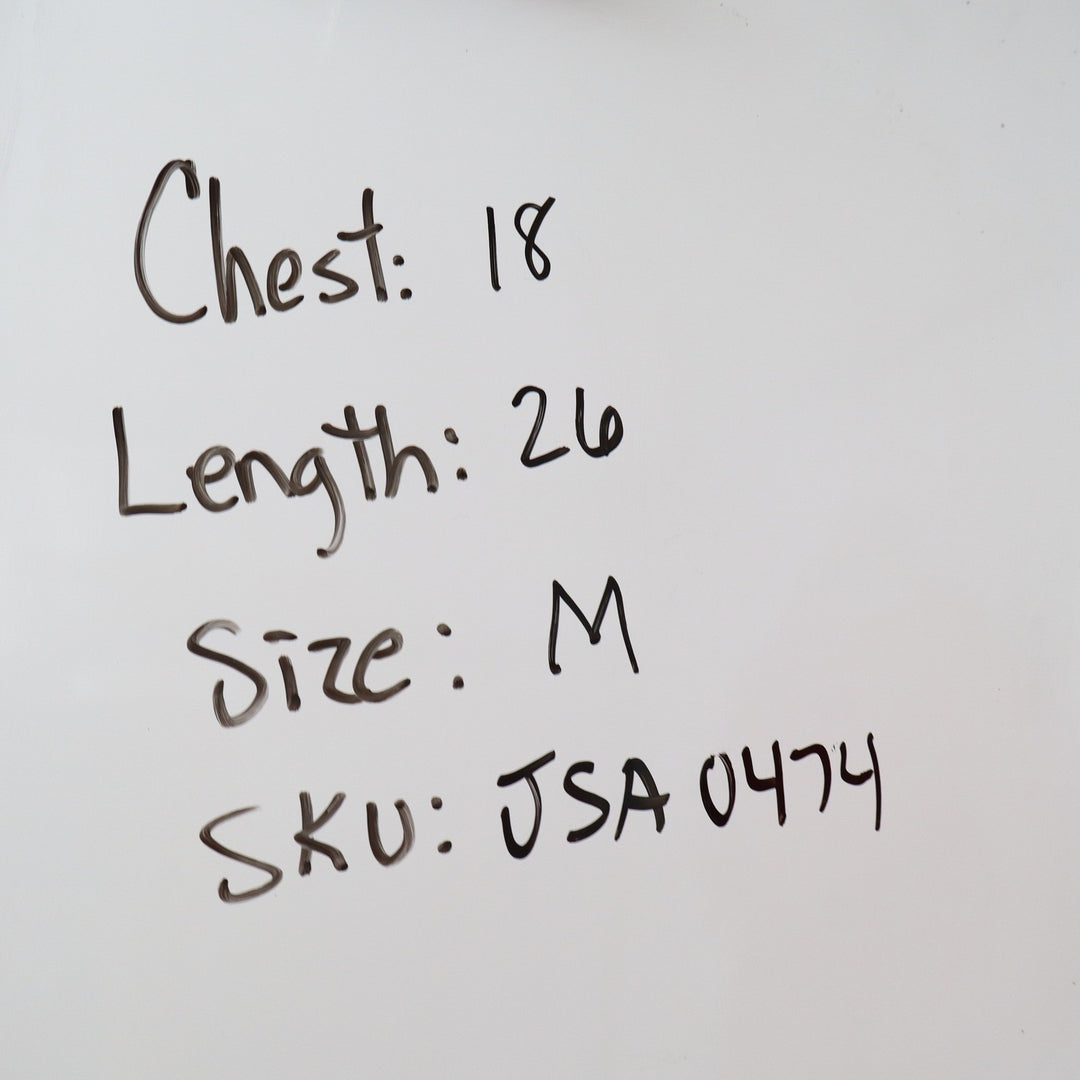 Chest: 18
Length: 26
Size: M
SKU: JSA 0474